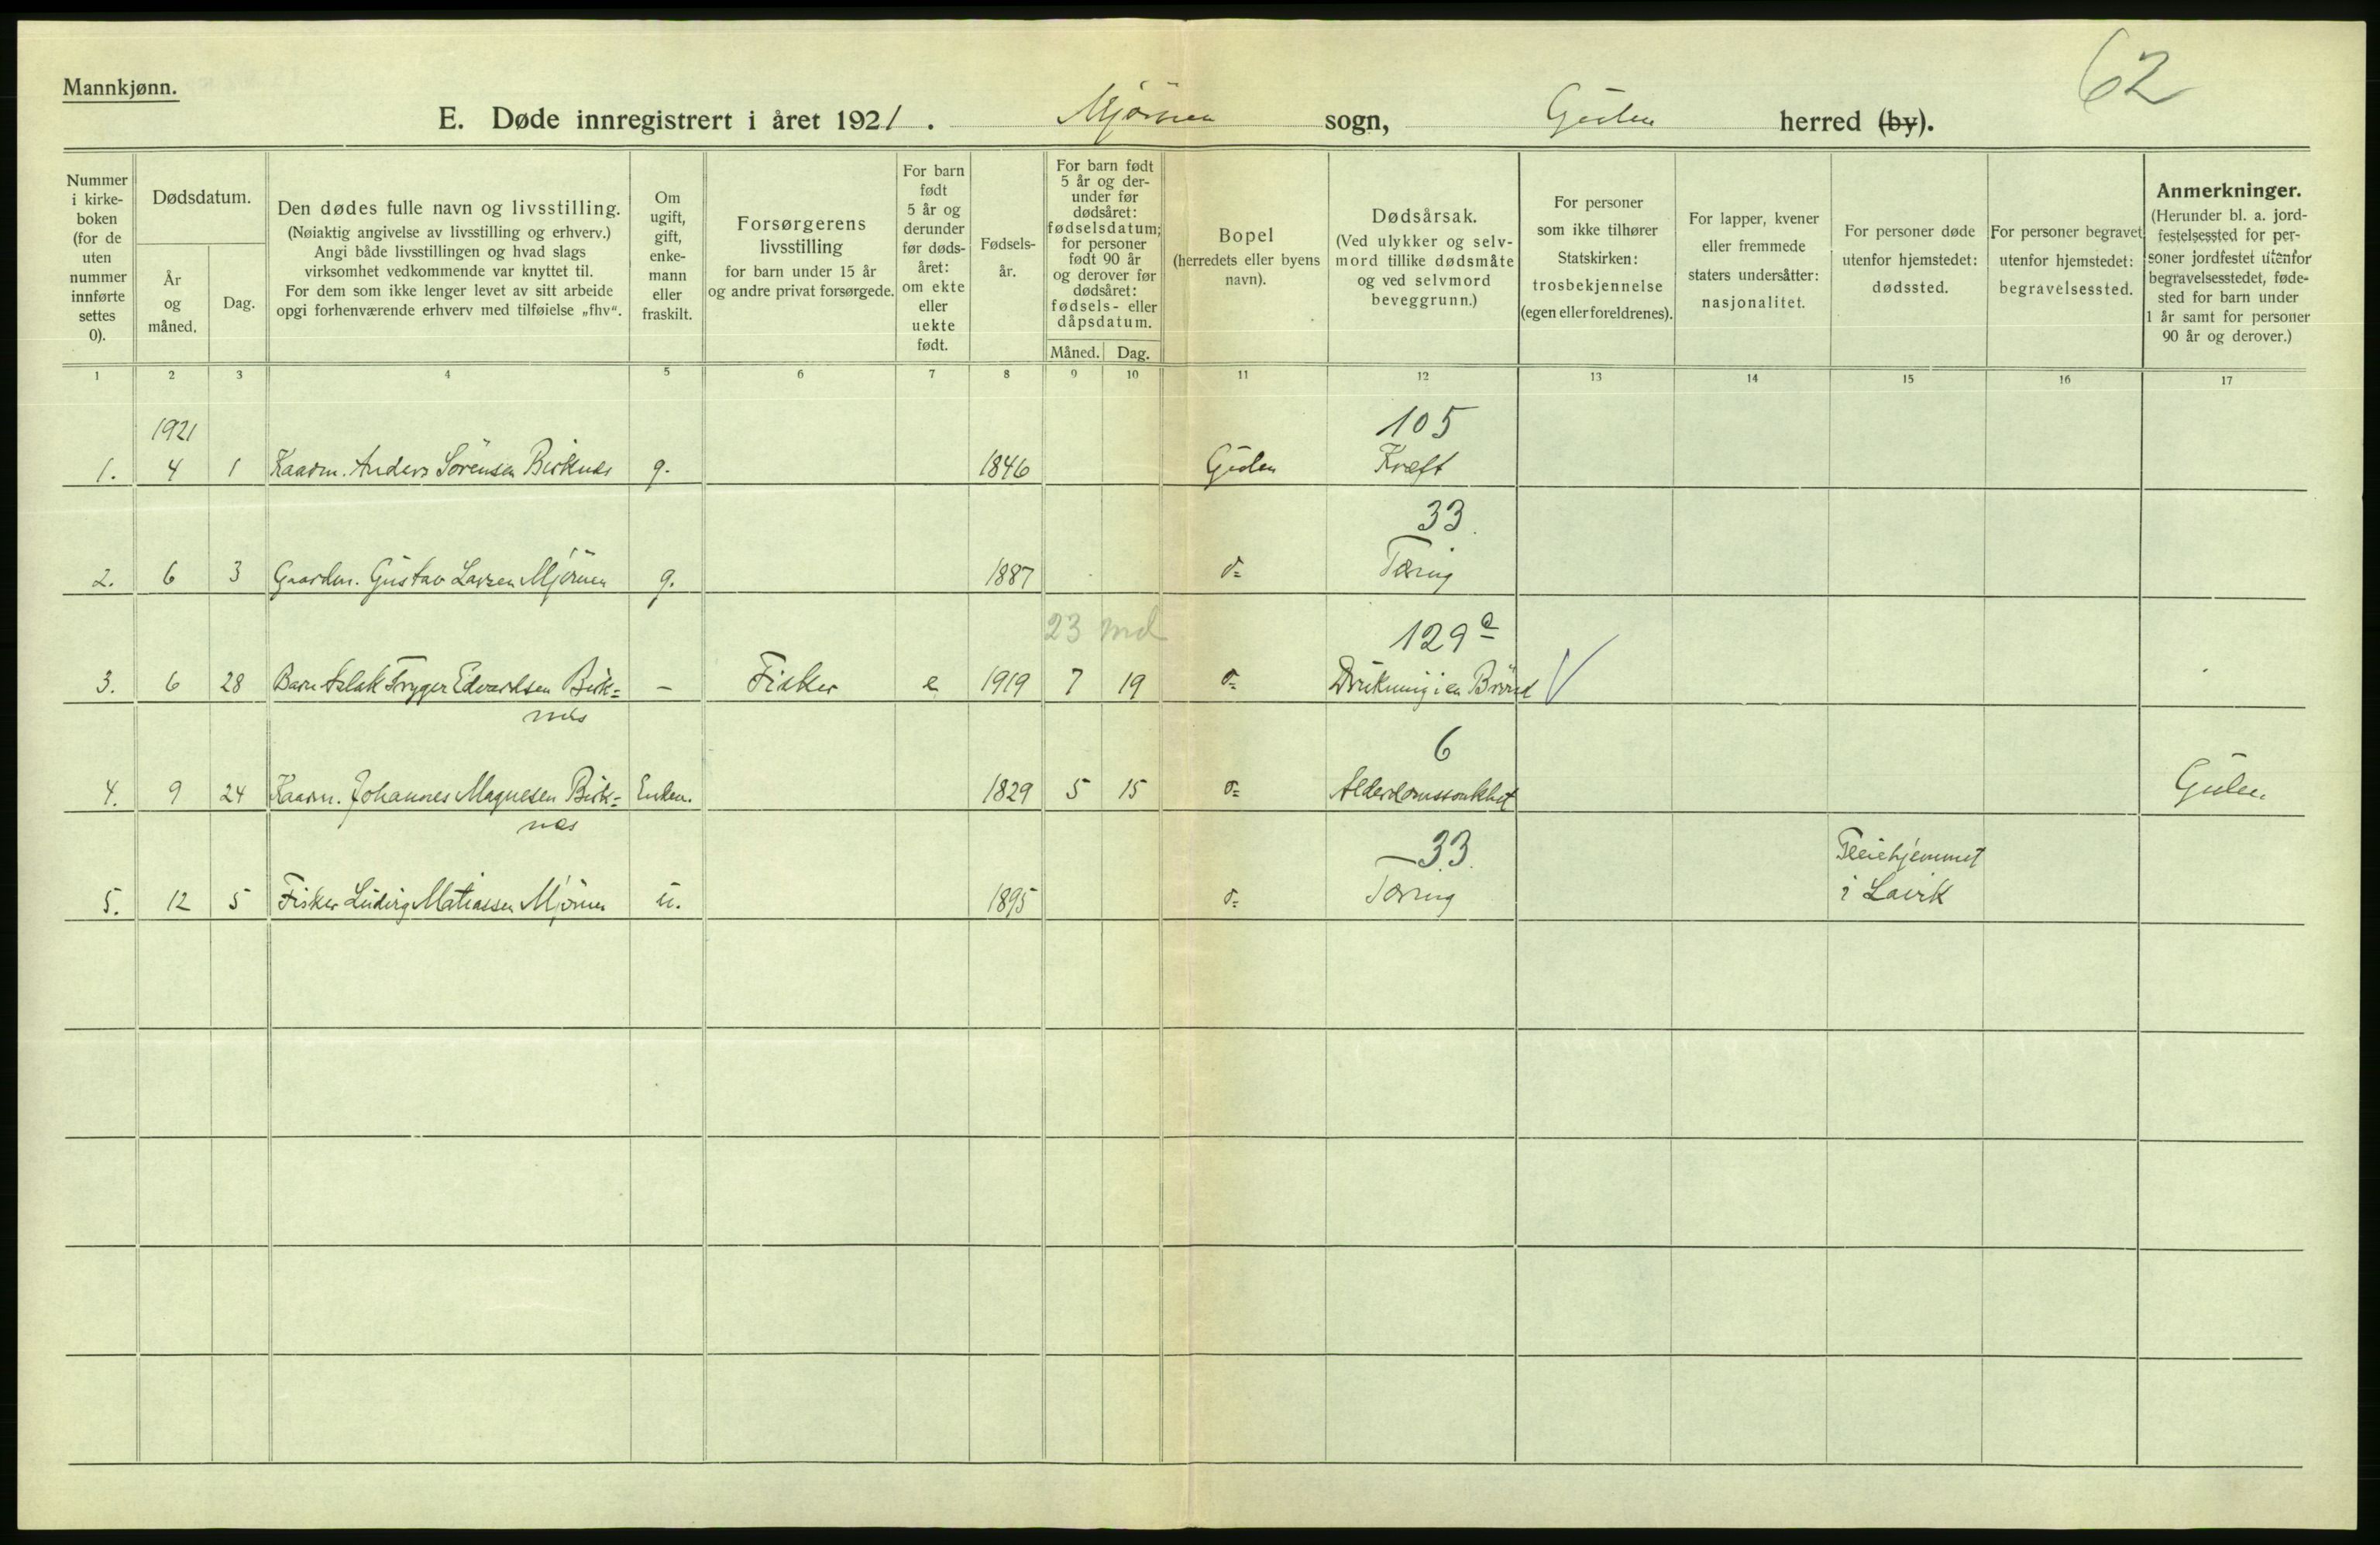 62
Mannkjønn.
E. Døde innregistrert i året 1921. Mjømen sogn, Gulen herred (by).
Nummer i kirke- boken (for de uten nummer innførte settes 0).
Dødsdatum.
År og måned.
Dag.
Den dødes fulle navn og livsstilling.
(Nøiaktig angivelse av livsstilling og erhverv.)
Angi både livsstillingen og hvad slags
virksomhet vedkommende var knyttet til.
For dem som ikke lenger levet av sitt arbeide
opgi forhenværende erhverv med tilføielse „fhv“.
Om ugift, gift, enke- mann eller fraskilt.
Forsørgerens
livsstilling
for barn under 15 år
og andre privat forsørgede.
For barn født 5 år og derunder før døds- året: om ekte eller uekte født.
Fødsels- år.
For barn født 5 år og der- under før dødsåret: fødselsdatum; for personer født 90 år og derover før dødsåret: fødsels- eller dåpsdatum.
Måned. Dag.
Bopel
(herredets eller byens
navn).
Dødsårsak.
(Ved ulykker og selv-
mord tillike dødsmåte
og ved selvmord
beveggrunn.)
For personer
som ikke tilhører
Statskirken:
trosbekjennelse
(egen eller foreldrenes).
For lapper, kvener
eller fremmede
staters undersåtter:
nasjonalitet.
For personer døde
utenfor hjemstedet:
dødssted.
For personer begravet
utenfor hjemstedet:
begravelsessted.
Anmerkninger.
(Herunder bl. a. jord-
festelsessted for per-
soner jordfestet utenfor
begravelsesstedet, føde-
sted for barn under
1 år samt for personer
90 år og derover.)
1 2 3 4 5 6 7 8 9 10 11 12 13 14 15 16 17
1921 105
1. 4 1 Kaarm. Anders Sörensen Birknes g. 1846 Gulen Kræft
33
2. 6 3 Gaardm. Gustav Larsen Mjömen g. 1887 d= Tæring
23 md 129 e
3. 6 28 Barn Aslak Trygve Edvardsen Birk= – Fisker e 1919 7 19 d= Drukning i en Brönd V
nes
6
4. 9 24 Kaarm. Johannes Magnesen Birk= Enkem. 1829 5 15 d= Alderdomssvakhet Gulen.
nes
33. Pleiehjemmet
5. 12 5 Fisker Ludvig Matiassen Mjömen u. 1895 d= Tæring i Lavik